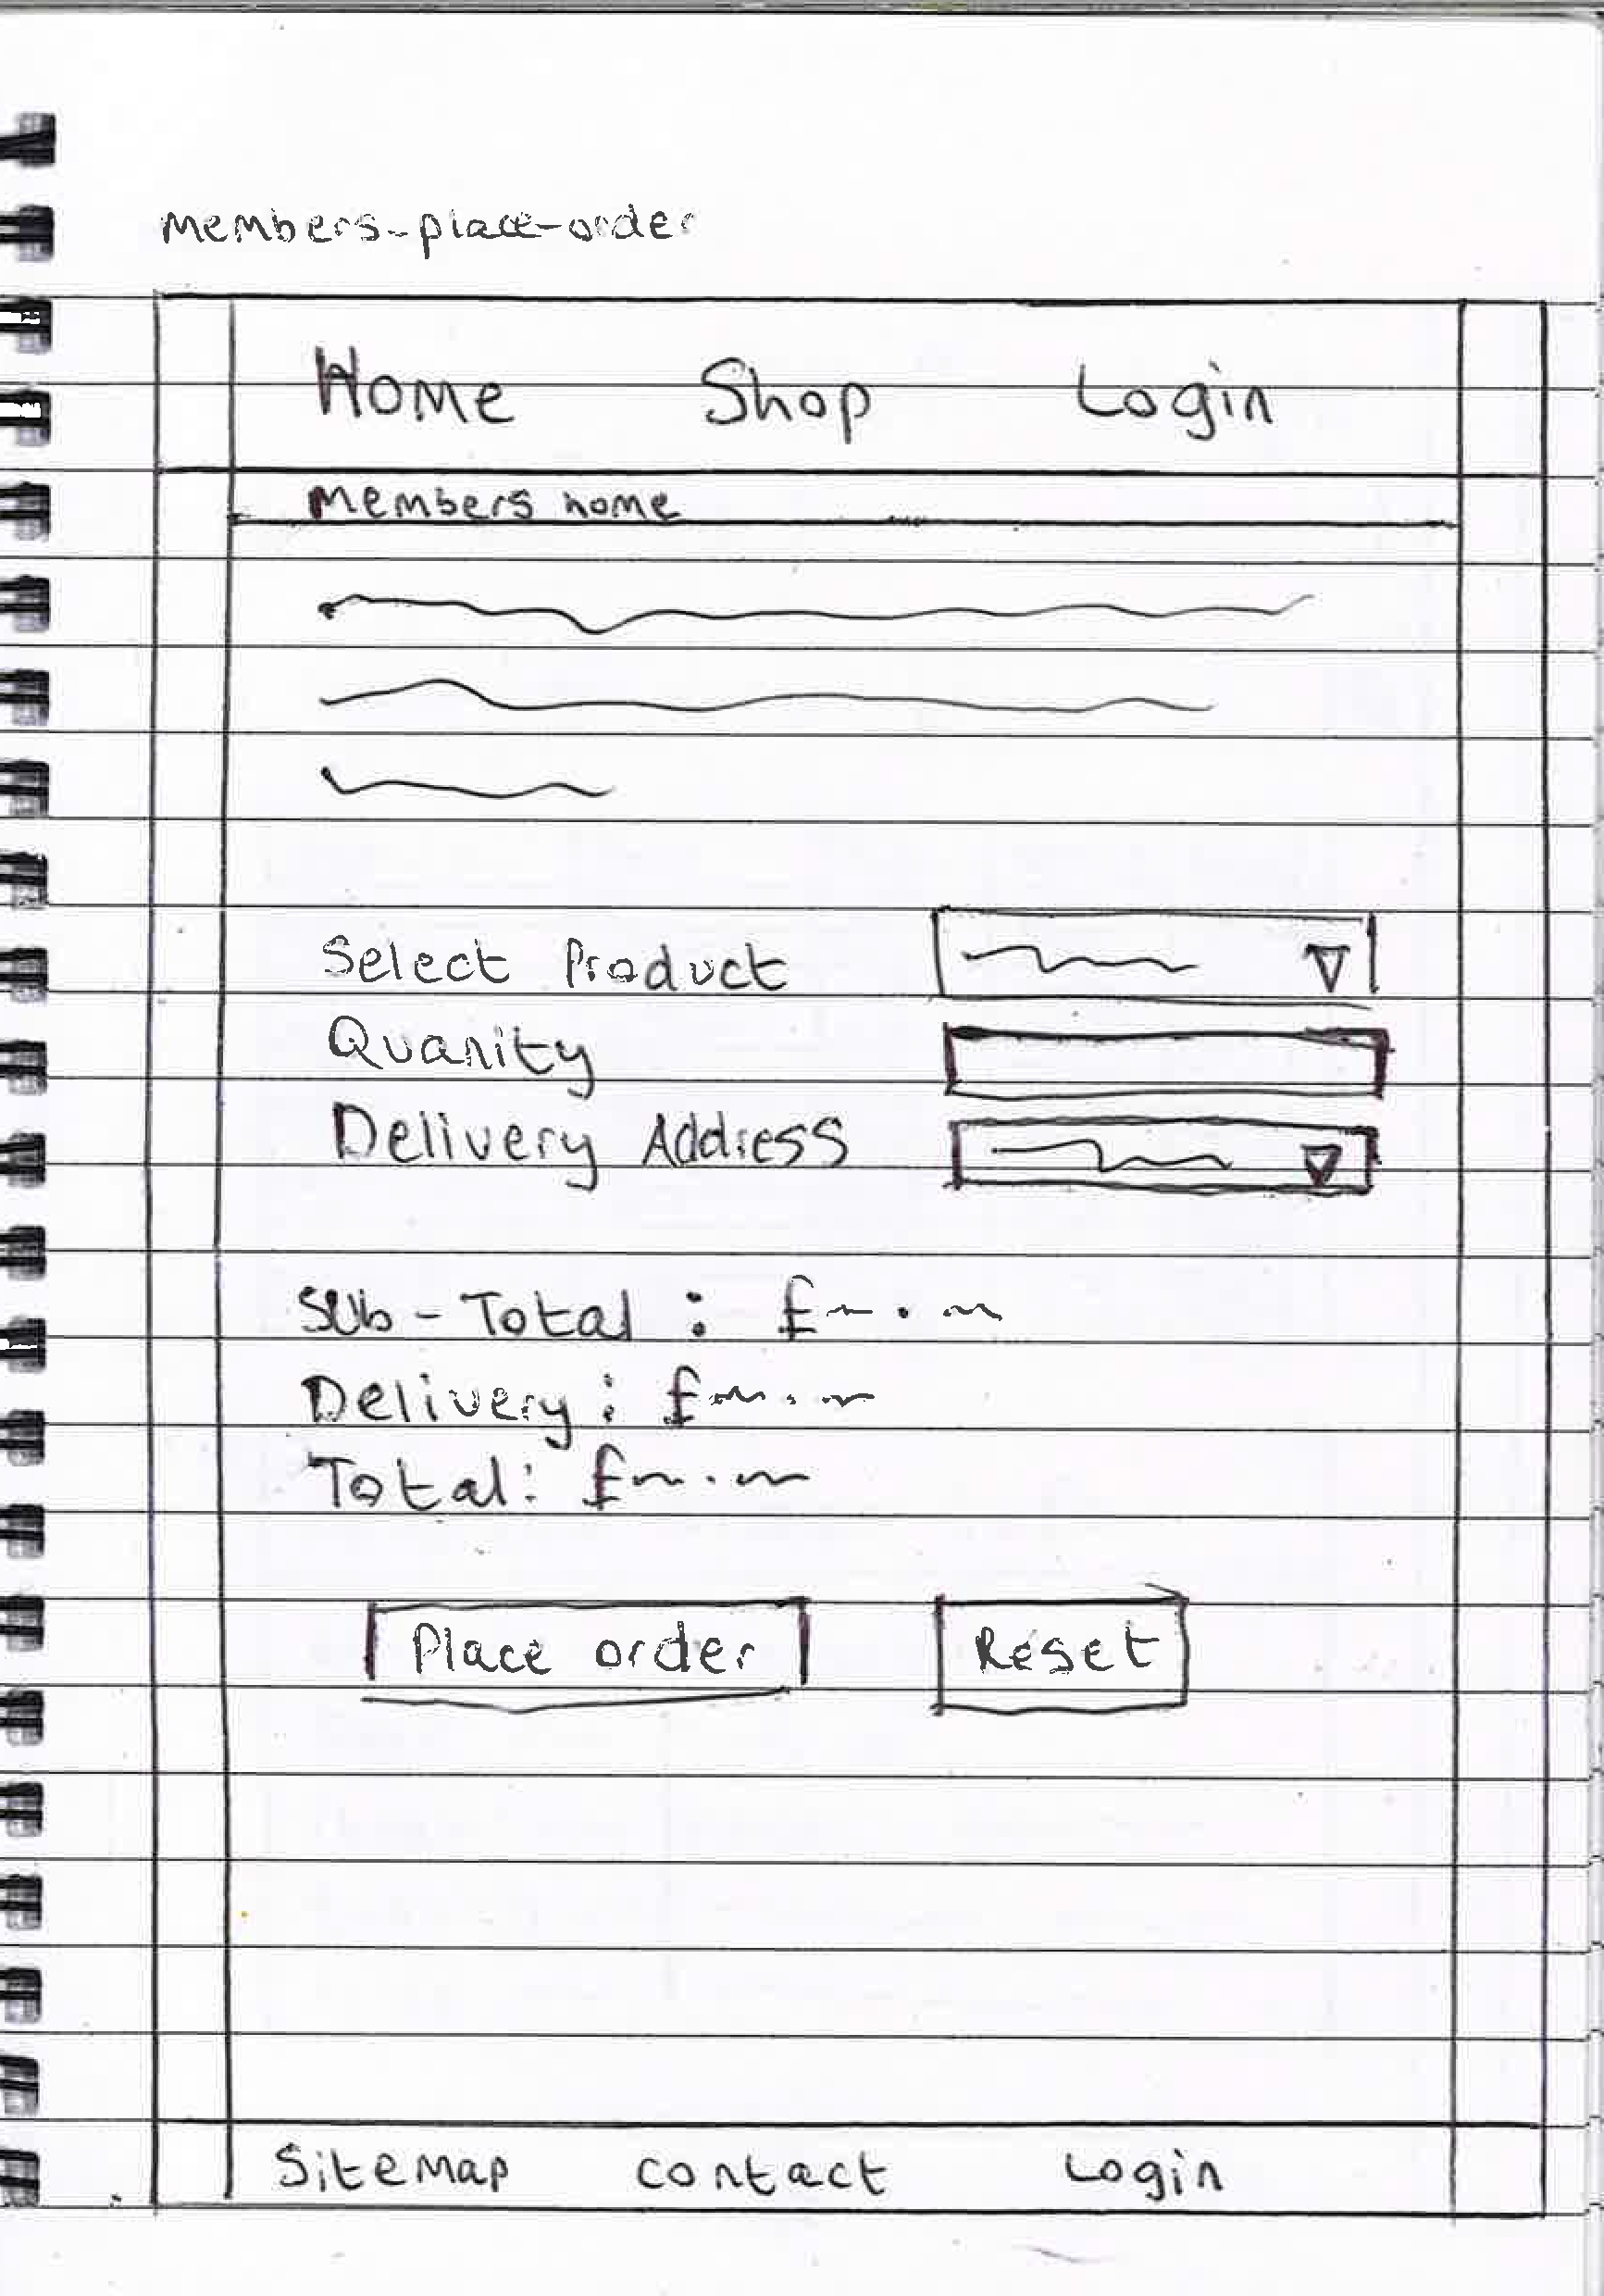 Members-place-order
Home Shop Login
Members home
Select Product
Quanity
Delivery Address
Sub-Total : £
Delivery : £
Total : £
Place order Reset
Sitemap contact Login